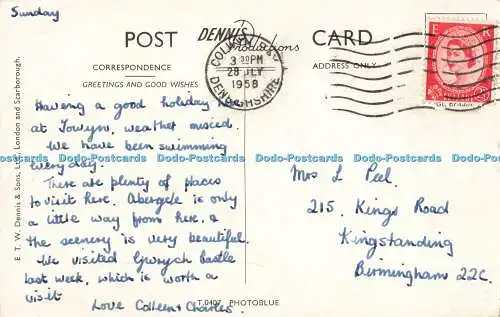 Sunday
POST
DENNIS
Productions
CARD
CORRESPONDENCE
ADDRESS ONLY
GREETINGS AND GOOD WISHES
COLWYN BAY
3 30PM
28 JLY
1958
DENBIGHSHIRE
E R
Having a good holiday here
at Towyn, weather mixed.
We have been swimming
every day.
There are plenty of places
to visit here. Abergele is only
a little way from here, &
the scenery is very beautiful.
We visited Gwrych Castle
last week, which is worth a
visit
Love Colleen & Charles.
Mrs L Peel.
215. Kings Road
Kingstanding
Birmingham 22C.
E. T. W. Dennis & Sons, Ltd., London and Scarborough.
T.0407 PHOTOBLUE
Dodo-Postcards Dodo-Postcards Dodo-Postcards Dodo-Postcards Dodo-Postcards